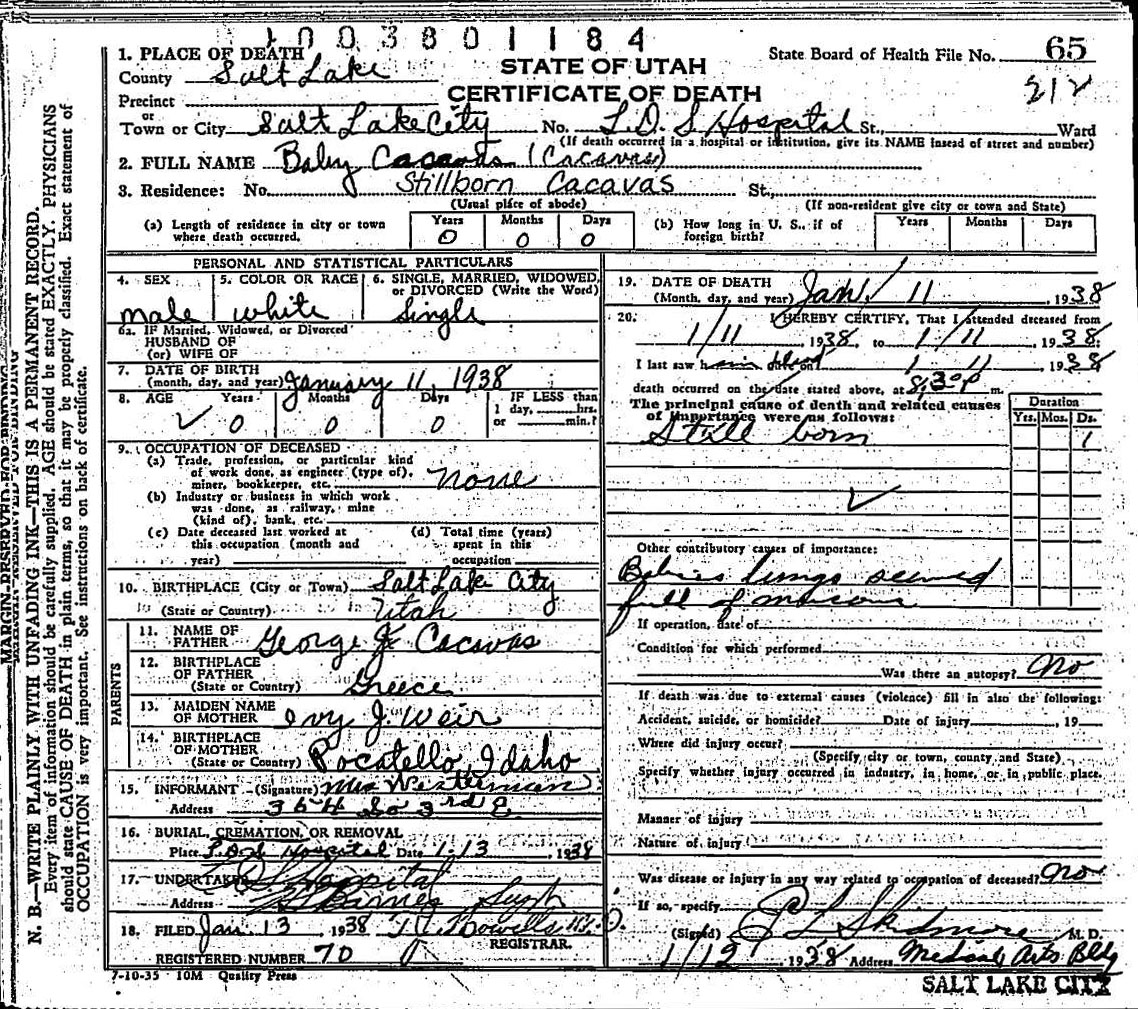 1003801184
1. PLACE OF DEATH
STATE OF UTAH
State Board of Health File No. 65
County Salt Lake
CERTIFICATE OF DEATH
212
Precinct
or
Town or City Salt Lake City No. L.D.S Hospital St., Ward
(If death occurred in a hospital or institution, give its NAME insead of street and number)
2. FULL NAME Baby Cacavas (Cacavas)
3. Residence: No. Stillborn Cacavas St.
(Usual place of abode) (If non-resident give city or town and State)
(a) Length of residence in city or town where death occurred. Years 0 Months 0 Days 0
(b) How long in U. S., if of foreign birth? Years Months Days
PERSONAL AND STATISTICAL PARTICULARS
4. SEX male
5. COLOR OR RACE white
6. SINGLE, MARRIED, WIDOWED, or DIVORCED (Write the Word) Single
6a. IF Married, Widowed, or Divorced
HUSBAND OF
(or) WIFE OF
7. DATE OF BIRTH
(month, day, and year) January 11, 1938
8. AGE Years 0 Months 0 Days 0
IF LESS than
1 day, hrs.
or min.?
9. OCCUPATION OF DECEASED
(a) Trade, profession, or particular kind
of work done, as engineer (type of),
miner, bookkeeper, etc. none
(b) Industry or business in which work
was done, as railway, mine
(kind of), bank, etc.
(c) Date deceased last worked at
this occupation (month and
year)
(d) Total time (years)
spent in this
occupation
10. BIRTHPLACE (City or Town) Salt Lake City
(State or Country) Utah
PARENTS
11. NAME OF
FATHER George J. Cacavas
12. BIRTHPLACE
OF FATHER
(State or Country) Greece
13. MAIDEN NAME
OF MOTHER Ivy J. Weir
14. BIRTHPLACE
OF MOTHER
(State or Country) Pocatello, Idaho
15. INFORMANT (Signature) Mrs Westerman
Address 364 So 3rd E
16. BURIAL, CREMATION, OR REMOVAL
Place L.D.S Hospital Date 1-13, 1938
17. UNDERTAKER Hospital
Address Barnes Supt
18. FILED Jan. 13, 1938
REGISTRAR.
REGISTERED NUMBER 70
7-10-35 10M Quality Press
19. DATE OF DEATH
(Month, day, and year) Jan. 11, 1938
20. I HEREBY CERTIFY, That I attended deceased from
1/11, 1938, to 1/11, 1938;
I last saw 1 11, 1938
death occurred on the date stated above, at 8:30 P m.
The principal cause of death and related causes
of importance were as follows:
Duration
Yrs. Mos. Ds.
Still born 1
Other contributory causes of importance:
Babies lungs seemed
full of mucous
If operation, date of
Condition for which performed
Was there an autopsy? No
If death was due to external causes (violence) fill in also the following:
Accident, suicide, or homicide? Date of injury, 19
Where did injury occur?
(Specify city or town, county and State)
Specify whether injury occurred in industry, in home, or in public place.
Manner of injury
Nature of injury
Was disease or injury in any way related to occupation of deceased? No
If so, specify
(Signed) Skidmore M. D.
1/12 1938 Address Medical Arts Bldg
SALT LAKE CITY
MARGIN RESERVED FOR BINDING
N. B.—WRITE PLAINLY WITH UNFADING INK—THIS IS A PERMANENT RECORD.
Every item of information should be carefully supplied. AGE should be stated EXACTLY. PHYSICIANS
should state CAUSE OF DEATH in plain terms, so that it may be properly classified. Exact statement of
OCCUPATION is very important. See instructions on back of certificate.